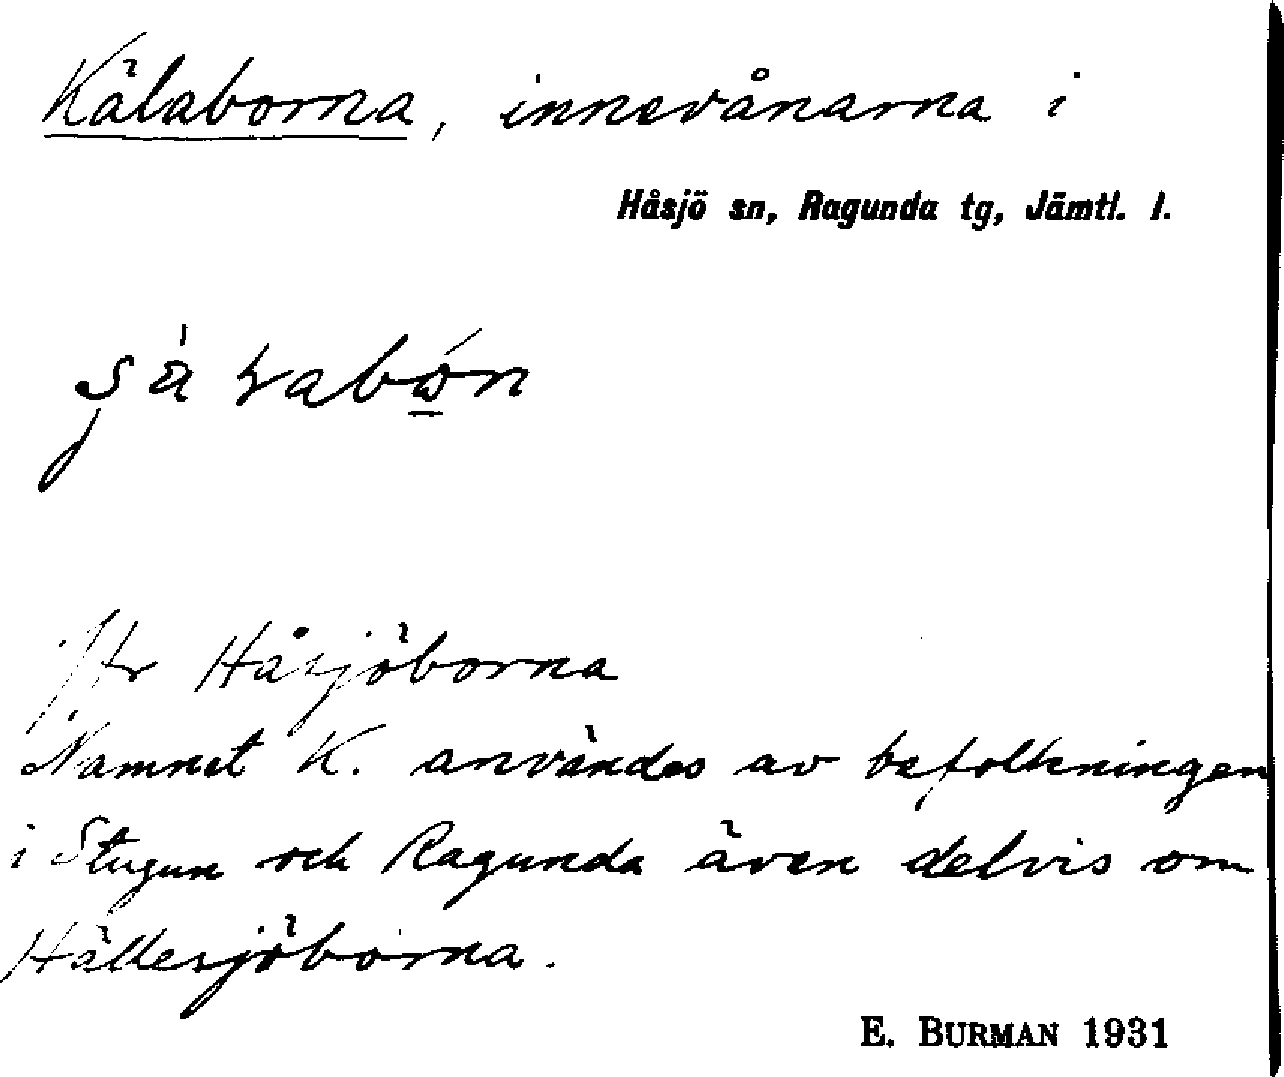 Kälaborna, innevånarna i
Håsjö sn, Ragunda tg, Jämtl. l.
Jfr Håsjöborna
Namnet K. användes av befolkningen
i Stugun och Ragunda även delvis om
Hällesjöborna.
E. BURMAN 1931